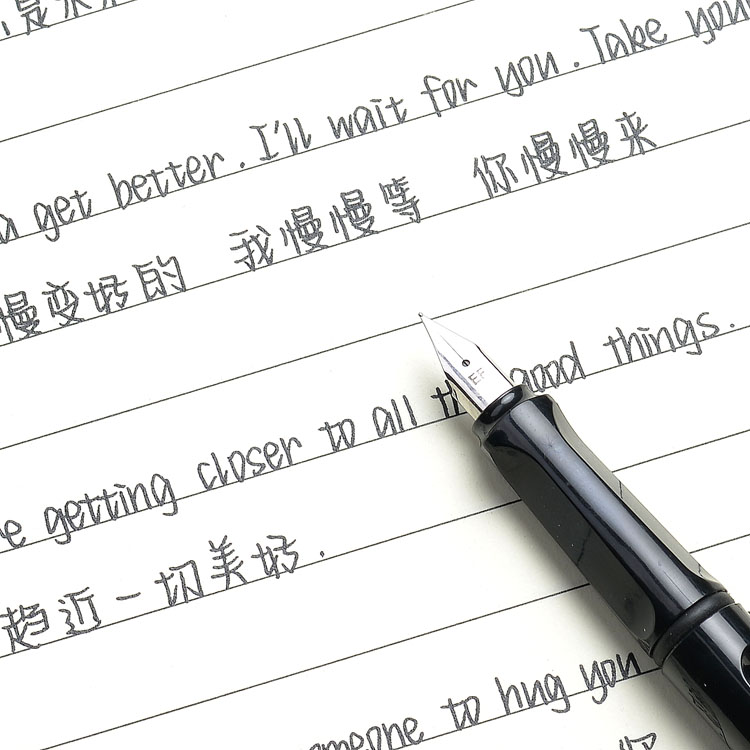 get better. I'll wait for you. Take you
慢变好的 我慢慢等 你慢慢来
getting closer to all good things.
趋近一切美好.
to hug you
EF